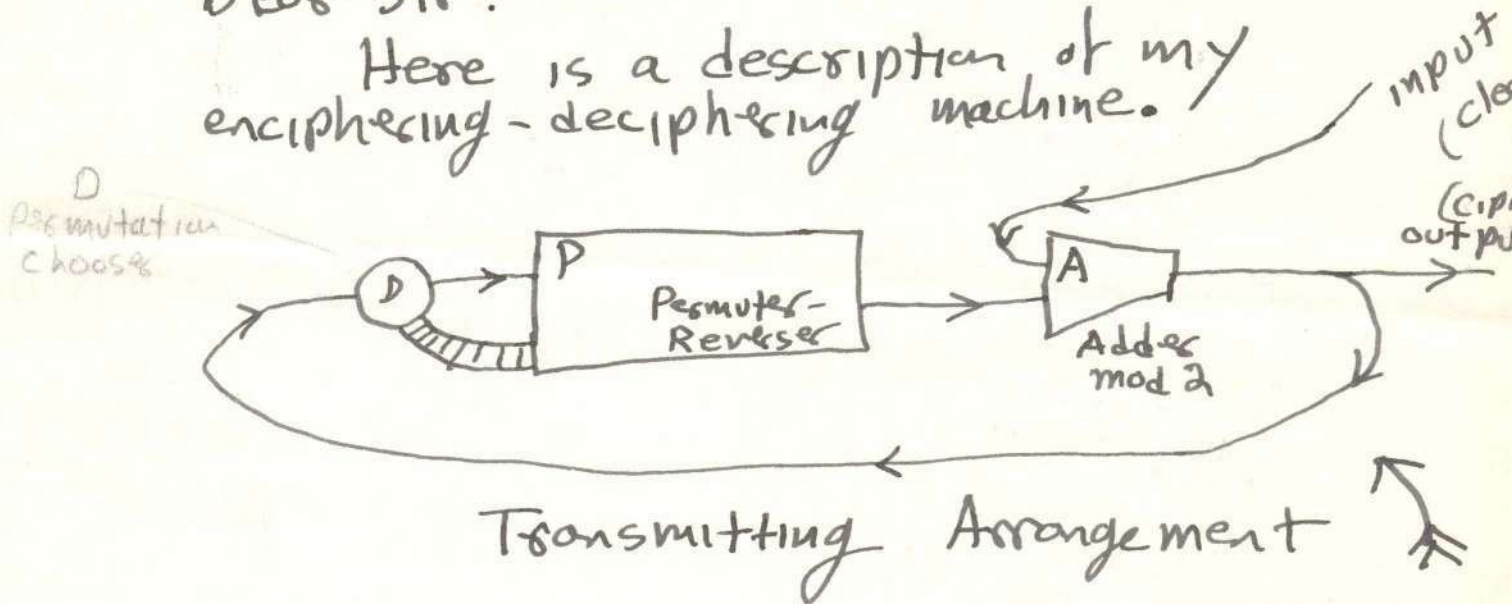 Dear Sir:
Here is a description of my
enciphering-deciphering machine.
input
(clea
(ciph
output
D
Permutation
chooser
D
P
Permuter-
Reverser
A
Adder
mod 2
Transmitting Arrangement